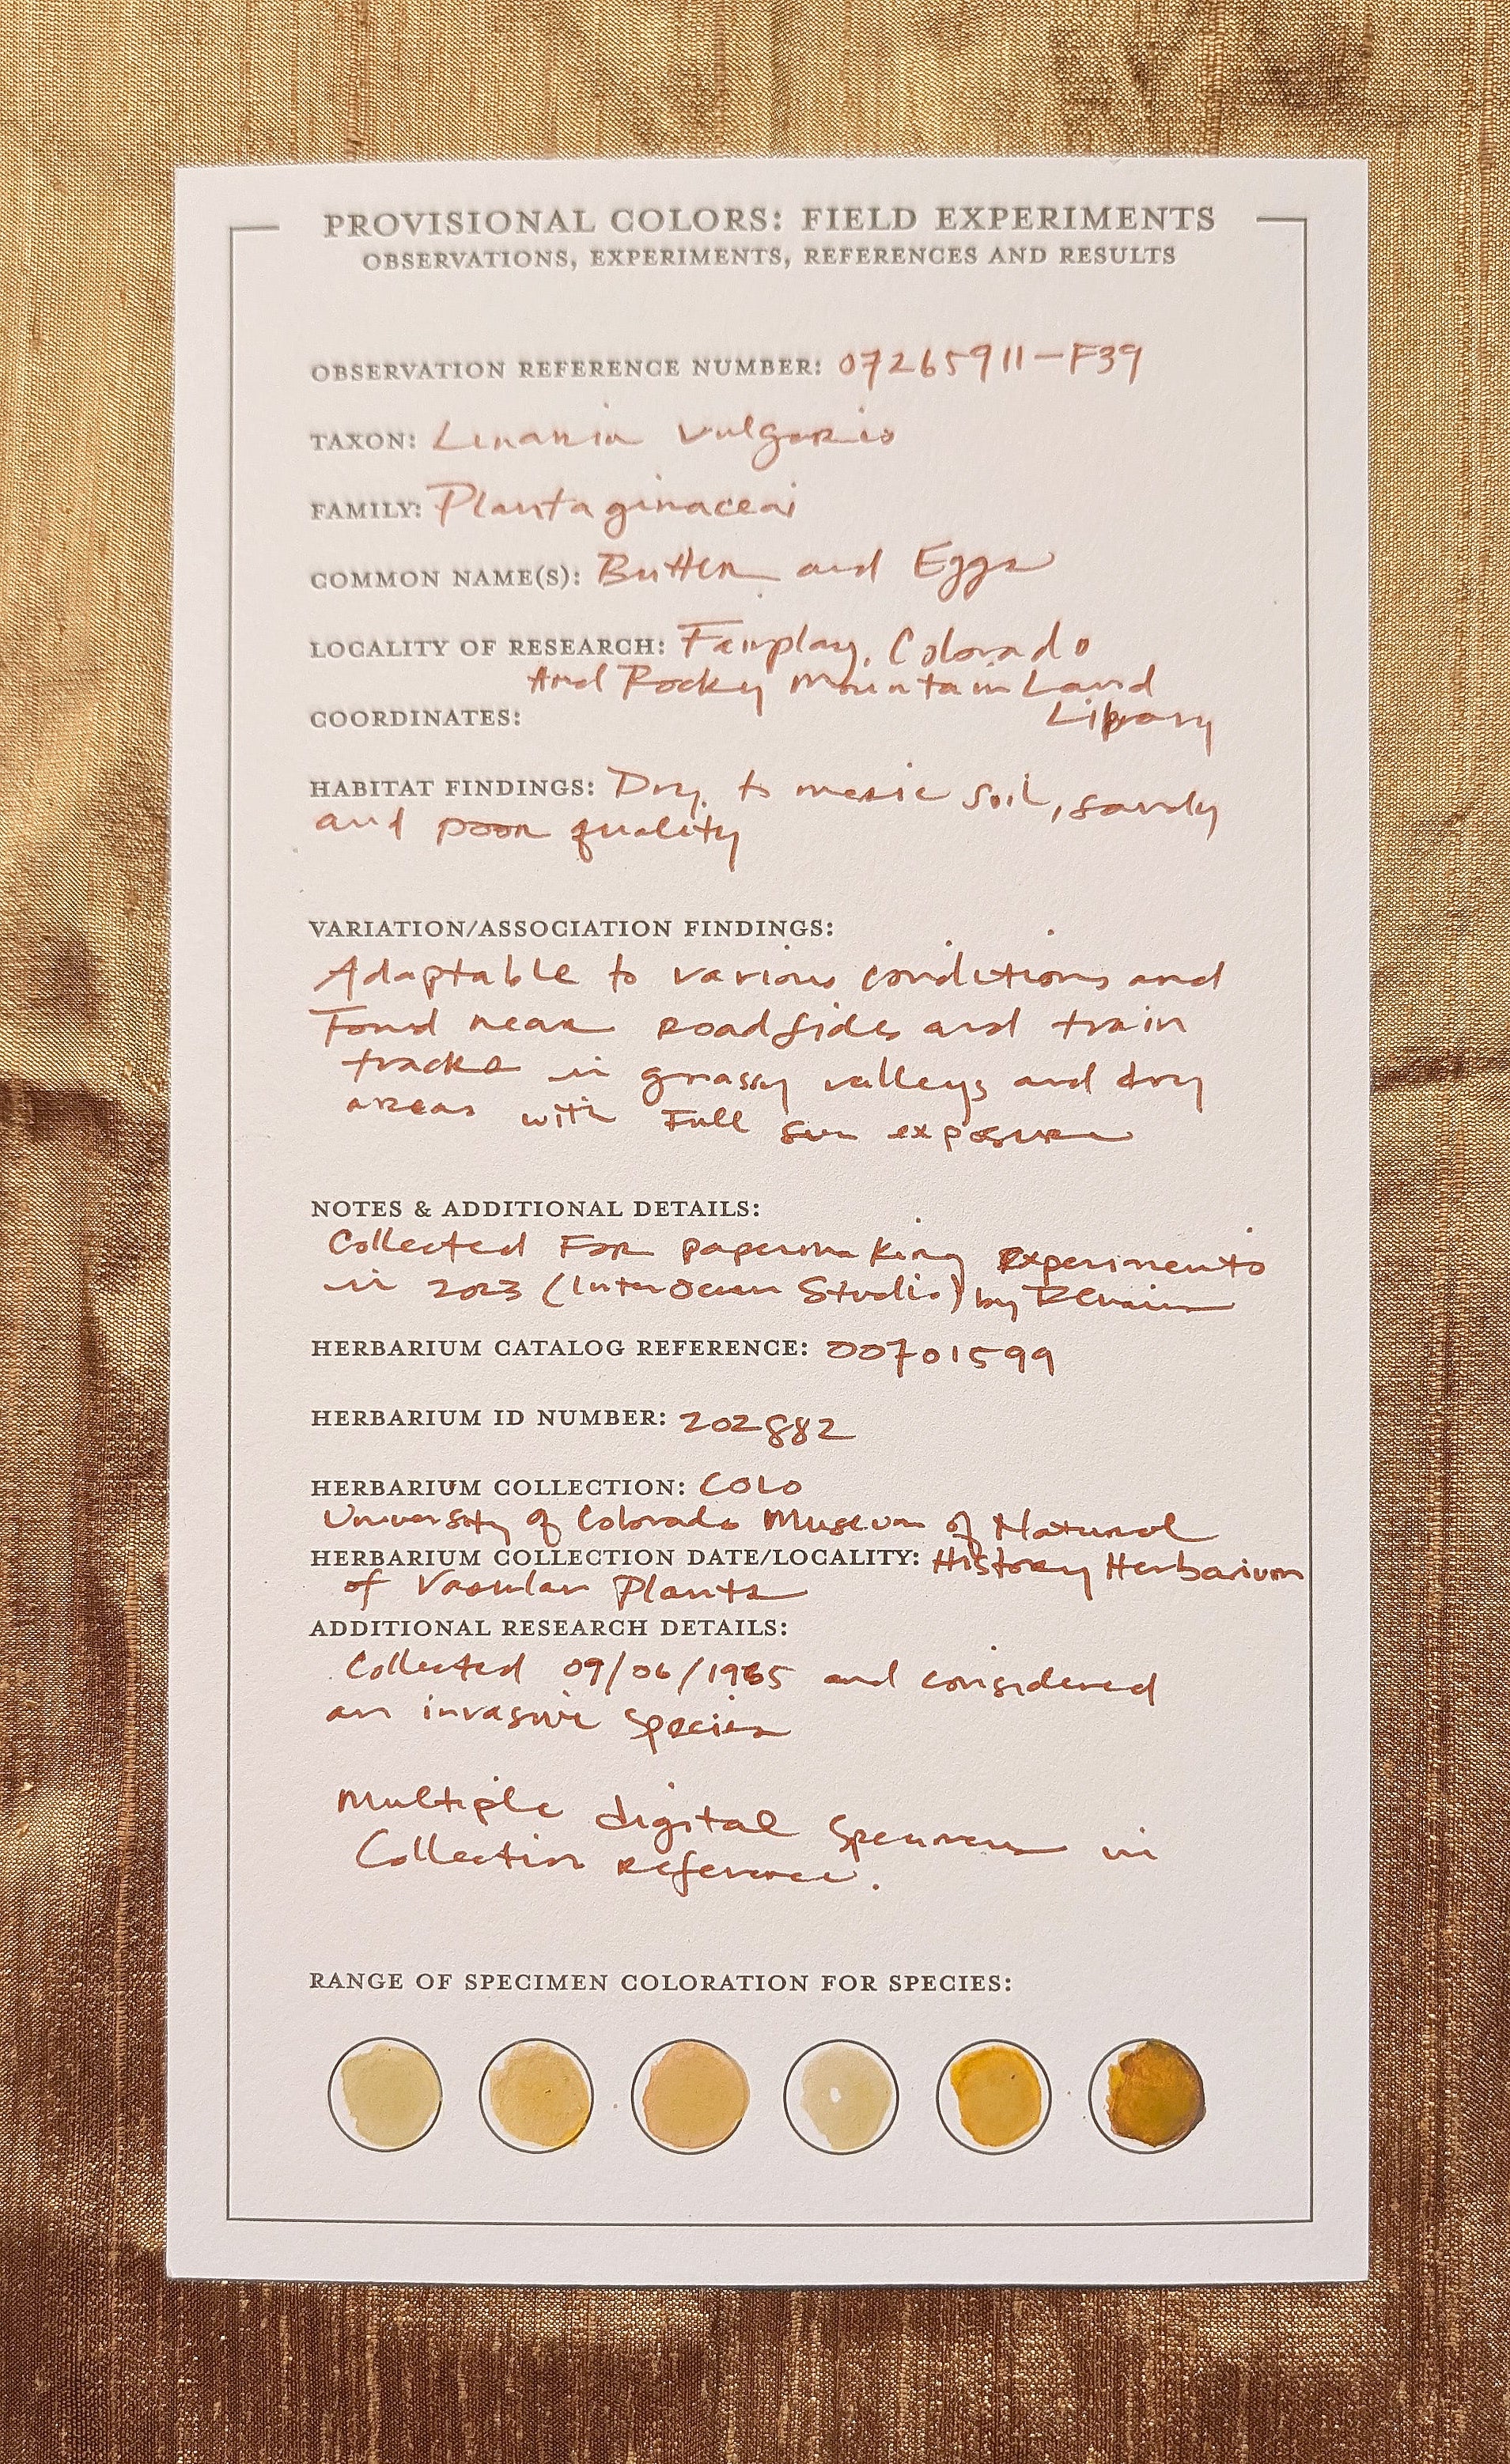 PROVISIONAL COLORS: FIELD EXPERIMENTS
OBSERVATIONS, EXPERIMENTS, REFERENCES AND RESULTS
OBSERVATION REFERENCE NUMBER: 07265911-F39
TAXON: Linaria vulgaris
FAMILY: Plantaginaceai
COMMON NAME(S): Butter and Eggs
LOCALITY OF RESEARCH: Fairplay, Colorado
And Rocky Mountain Land
COORDINATES: Library
HABITAT FINDINGS: Dry to mesic soil, sandy
and poor quality
VARIATION/ASSOCIATION FINDINGS:
Adaptable to various conditions and
Fond near roadsides and train
tracks in grassy valleys and dry
areas with Full sun exposure
NOTES & ADDITIONAL DETAILS:
Collected For papermaking Experiments
in 2023 (InterOcean Studio) by
HERBARIUM CATALOG REFERENCE: 00701599
HERBARIUM ID NUMBER: 202882
HERBARIUM COLLECTION: COLO
University of Colorado Museum of Natural
HERBARIUM COLLECTION DATE/LOCALITY: History Herbarium
of Vascular Plants
ADDITIONAL RESEARCH DETAILS:
Collected 09/06/1965 and considered
an invasive species
Multiple digital Specimens in
Collection reference.
RANGE OF SPECIMEN COLORATION FOR SPECIES: